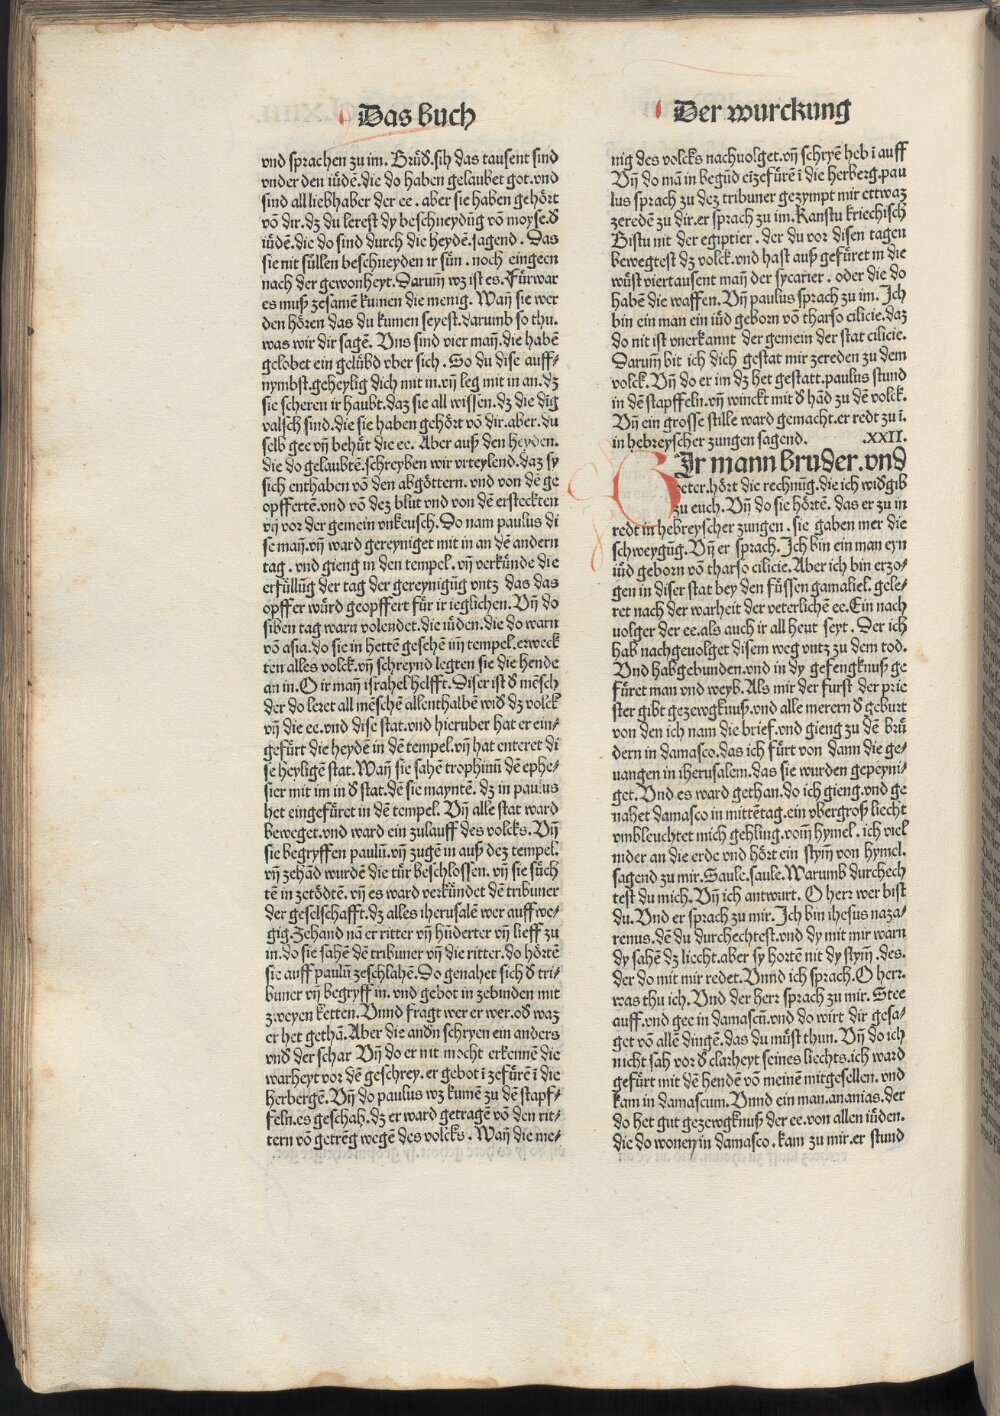 Das buch
vnd sprachen zu im. Brůd̄.sih das tausent sind
vnder den iůdē.die do haben gelaubet got.vnd
sind all liebhaber der ee. aber sie haben gehört
vō dir.dz du lerest dy beschneydūg vō moyse.d̄
iůdē.die do sind durch die heydē.sagend. Das
sie nit süllen beschneyden ir sün. noch eingeen
nach der gewonheyt.Darum̄ wz ist es.Fürwar
es muß zesamē kumen die menig. Wañ sie wer
den hören das du kumen seyest.darumb so thu.
was wir dir sagē. Vns sind vier mañ.die habē
gelobet ein gelübd vber sich. So du dise auff⸗
nymbst.geheylig dich mit in.vñ leg mit in an.dz
sie scheren ir haubt.daz sie all wissen.dz die dig
valsch sind.die sie haben gehört vō dir.aber.du
selb gee vñ behüt die ee. Aber auß den heyden.
die do gelaubtē.schreyben wir vrteylend.daz sy
sich enthaben vō den abgöttern.vnd von dē ge
opffertē.vnd vō dez blut vnd von dē ersteckten
vñ vor der gemein vnkeusch.Do nam paulus di
se mañ.vñ ward gereyniget mit in an dē andern
tag. vnd gieng in den tempel. vñ verkünde die
erfüllūg der tag der gereynigūg vntz das das
opffer würd geopffert für ir ieglichen. Vñ do
siben tag warn volendet.die iüden.die do warn
vō asia.do sie in hettē gesehē im̄ tempel.erweck
ten alles volck.vñ schreynd legten sie die hende
an in. O ir mañ israhel helfft. Diser ist d̄ mēsch
der do leret all mēschē allenthalbē wid̄ dz volck
vñ die ee.vnd dise stat.vnd hieruber hat er ein⸗
gefürt die heydē in dē tempel.vñ hat enteret di
se heyligē stat.Wañ sie sahē trophinū dē ephe⸗
sier mit im in d̄ stat.dē sie mayntē. dz in paulus
het eingefüret in dē tempel. Vñ alle stat ward
beweget.vnd ward ein zulauff des volcks. Vñ
sie begryffen paulū.vñ zugē in auß dez tempel.
vñ zehād wurdē die tür beschlossen. vñ sie süch
tē in zetödtē. vñ es ward verkündet dē tribuner
der geselschafft.dz alles iherusalē wer auffwe⸗
gig.Zehand nā er ritter vñ hūderter vñ lieff zu
in.do sie sahē dē tribuner vñ die ritter.do hörtē
sie auff paulū zeschlahē.Do genahet sich d̄ tri⸗
buner vñ begryff in. vnd gebot in zebinden mit
zweyen ketten. Vnnd fragt wer er wer.od̄ waz
er het gethā. Aber die and̄n schryen ein anders
vnd̄ der schar Vñ do er nit mocht erkennē die
warheyt vor dē geschrey. er gebot ī zefürē ī die
herbergē. Vñ do paulus wz kumē zu dē stapf⸗
feln.es geschah.dz er ward getragē vō den rit⸗
tern vō getrēg wegē des volcks. Wañ die me⸗
Der wurckung
nig des volcks nachuolget.vñ schryē heb ī auff
Vñ do mā in begūd eīzefürē ī die herberg.pau
lus sprach zu dez tribuner gezympt mir ettwaz
zeredē zu dir.er sprach zu im.Kanstu kriechisch
Bistu nit der egiptier. der du vor disen tagen
bewegtest dz volck.vnd hast auß gefüret in die
wüst viertausent mañ der sycarier. oder die do
habē die waffen. Vñ paulus sprach zu im. Ich
bin ein man ein iůd geborn vō tharso cilicie.daz
do nit ist vnerkannt der gemein der stat cilicie.
Darum̄ bit ich dich gestat mir zereden zu dem
volck. Vñ do er im dz het gestatt.paulus stund
in dē stapffeln.vñ winckt mit d̄ hād zu dē volck.
Vñ ein grosse stille ward gemacht.er redt zu ī.
in hebreyscher zungen sagend. .XXII.
Ir mann bruder.vnd
veter.hört die rechnūg.die ich wid̄gib
zu euch. Vñ do sie hörtē. das er zu in
redt in hebreyscher zungen. sie gaben mer die
schweygūg. Vñ er sprach. Ich bin ein man eyn
iůd geborn vō tharso cilicie. Aber ich bin erzo⸗
gen in diser stat bey den füssen gamaliel. gele⸗
ret nach der warheit der veterlichē ee.Ein nach
uolger der ee.als auch ir all heut seyt. Der ich
hab nachgeuolget disem weg vntz zu dem tod.
Vnd hab gebunden.vnd in dy gefengknuß ge
füret man vnd weyb.Als mir der furst der prie
ster gibt gezewgknuß.vnd alle merern d̄ geburt
von den ich nam die brief.vnd gieng zu dē brü
dern in damasco.das ich fürt von dann die ge⸗
uangen in iherusalem.das sie wurden gepeyni⸗
get. Vnd es ward gethan.do ich gieng.vnd ge
nahet damasco in mittētag.ein vbergroß liecht
vmbleuchtet mich gehling.vom̄ hymel. ich viel
nider an die erde vnd hört ein stym̄ von hymel.
sagend zu mir.Saule.saule.Warumb durchech
test du mich. Vñ ich antwurt. O herr wer bist
du. Vnd er sprach zu mir. Ich bin ihesus naza⸗
renus.dē du durchechtest.vnd dy mit mir warn
dy sahē dz liecht.aber sy hortē nit dy stym̄.des.
der do mit mir redet. Vnnd ich sprach. O herr.
was thu ich. Vnd der herr sprach zu mir. Stee
auff.vnd gee in damascū.vnd do wirt dir gesa⸗
get vō allē dingē.das du müst thun. Vñ do ich
nicht sah vor d̄ clarheyt seines liechts.ich ward
gefürt mit dē hendē vō meinē mitgesellen. vnd
kam in damascum. Vnnd ein man.ananias.der
do het gut gezewgknuß der ee.von allen iüden.
die do woneñ in damasco. kam zu mir.er stund